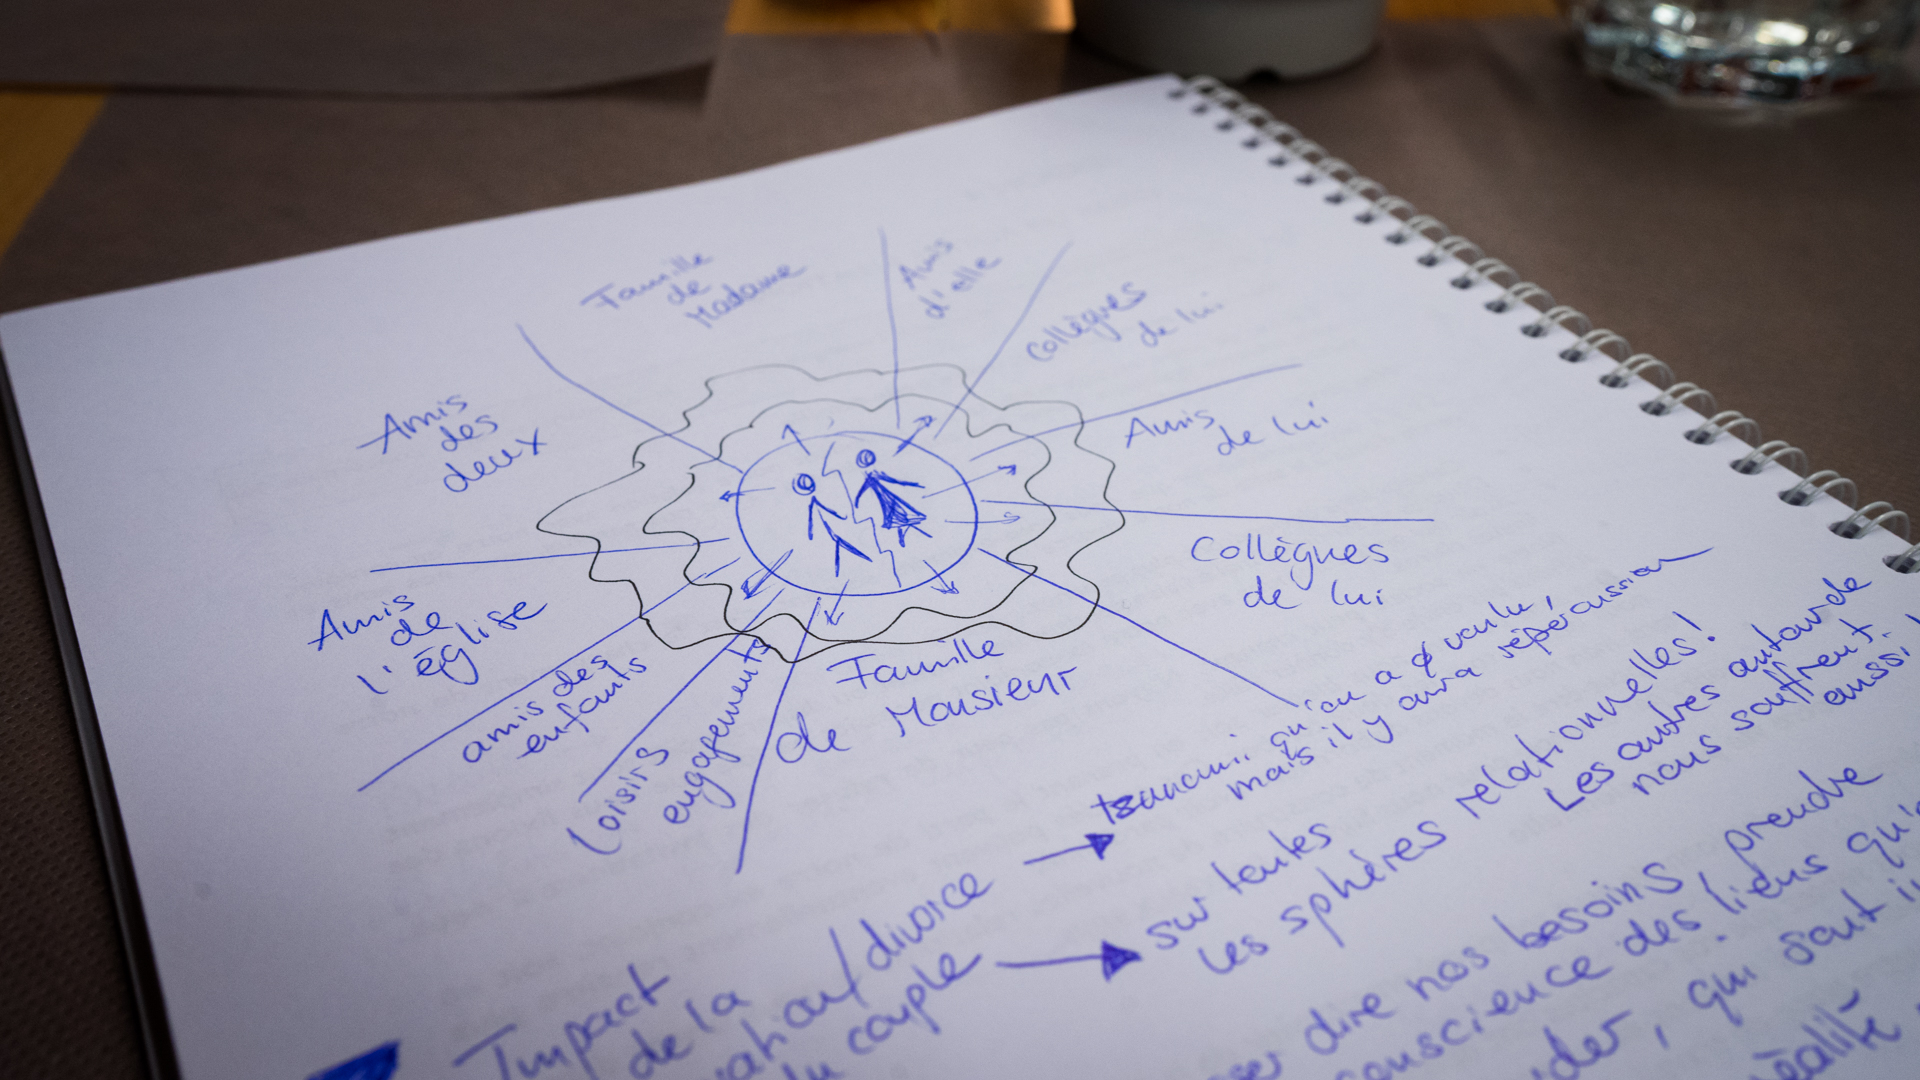 Famille
de
Madame
Amis
d'elle
Collègues
de lui
Amis
des
deux
Amis
de lui
Collègues
de lui
Amis
de
l'église
amis des
enfants
Loisirs
engagements
Famille
de Monsieur
Impact
de la
/divorce
du couple
qu'on a voulu,
mais il y aura répercussion
sur toutes
les sphères relationnelles!
Les autres autour de
nous souffrent
aussi!
dire nos besoins, prendre
conscience des liens qu'
, qui sont
réalité